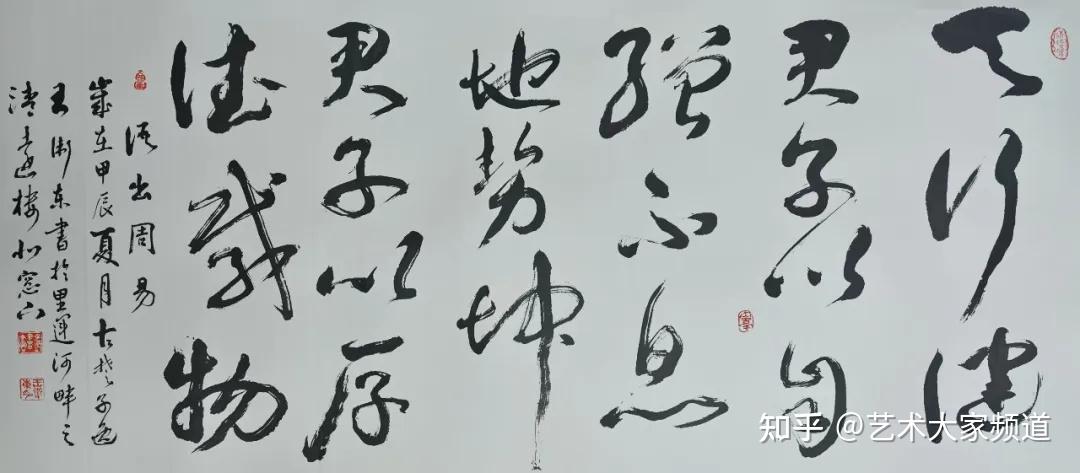 天行健
君子以自
强不息
地势坤
君子以厚
德载物
语出周易
歲在甲辰夏月古楚子逸
王衛东書於里運河畔之
清遠楼北窓下
知乎 @艺术大家频道